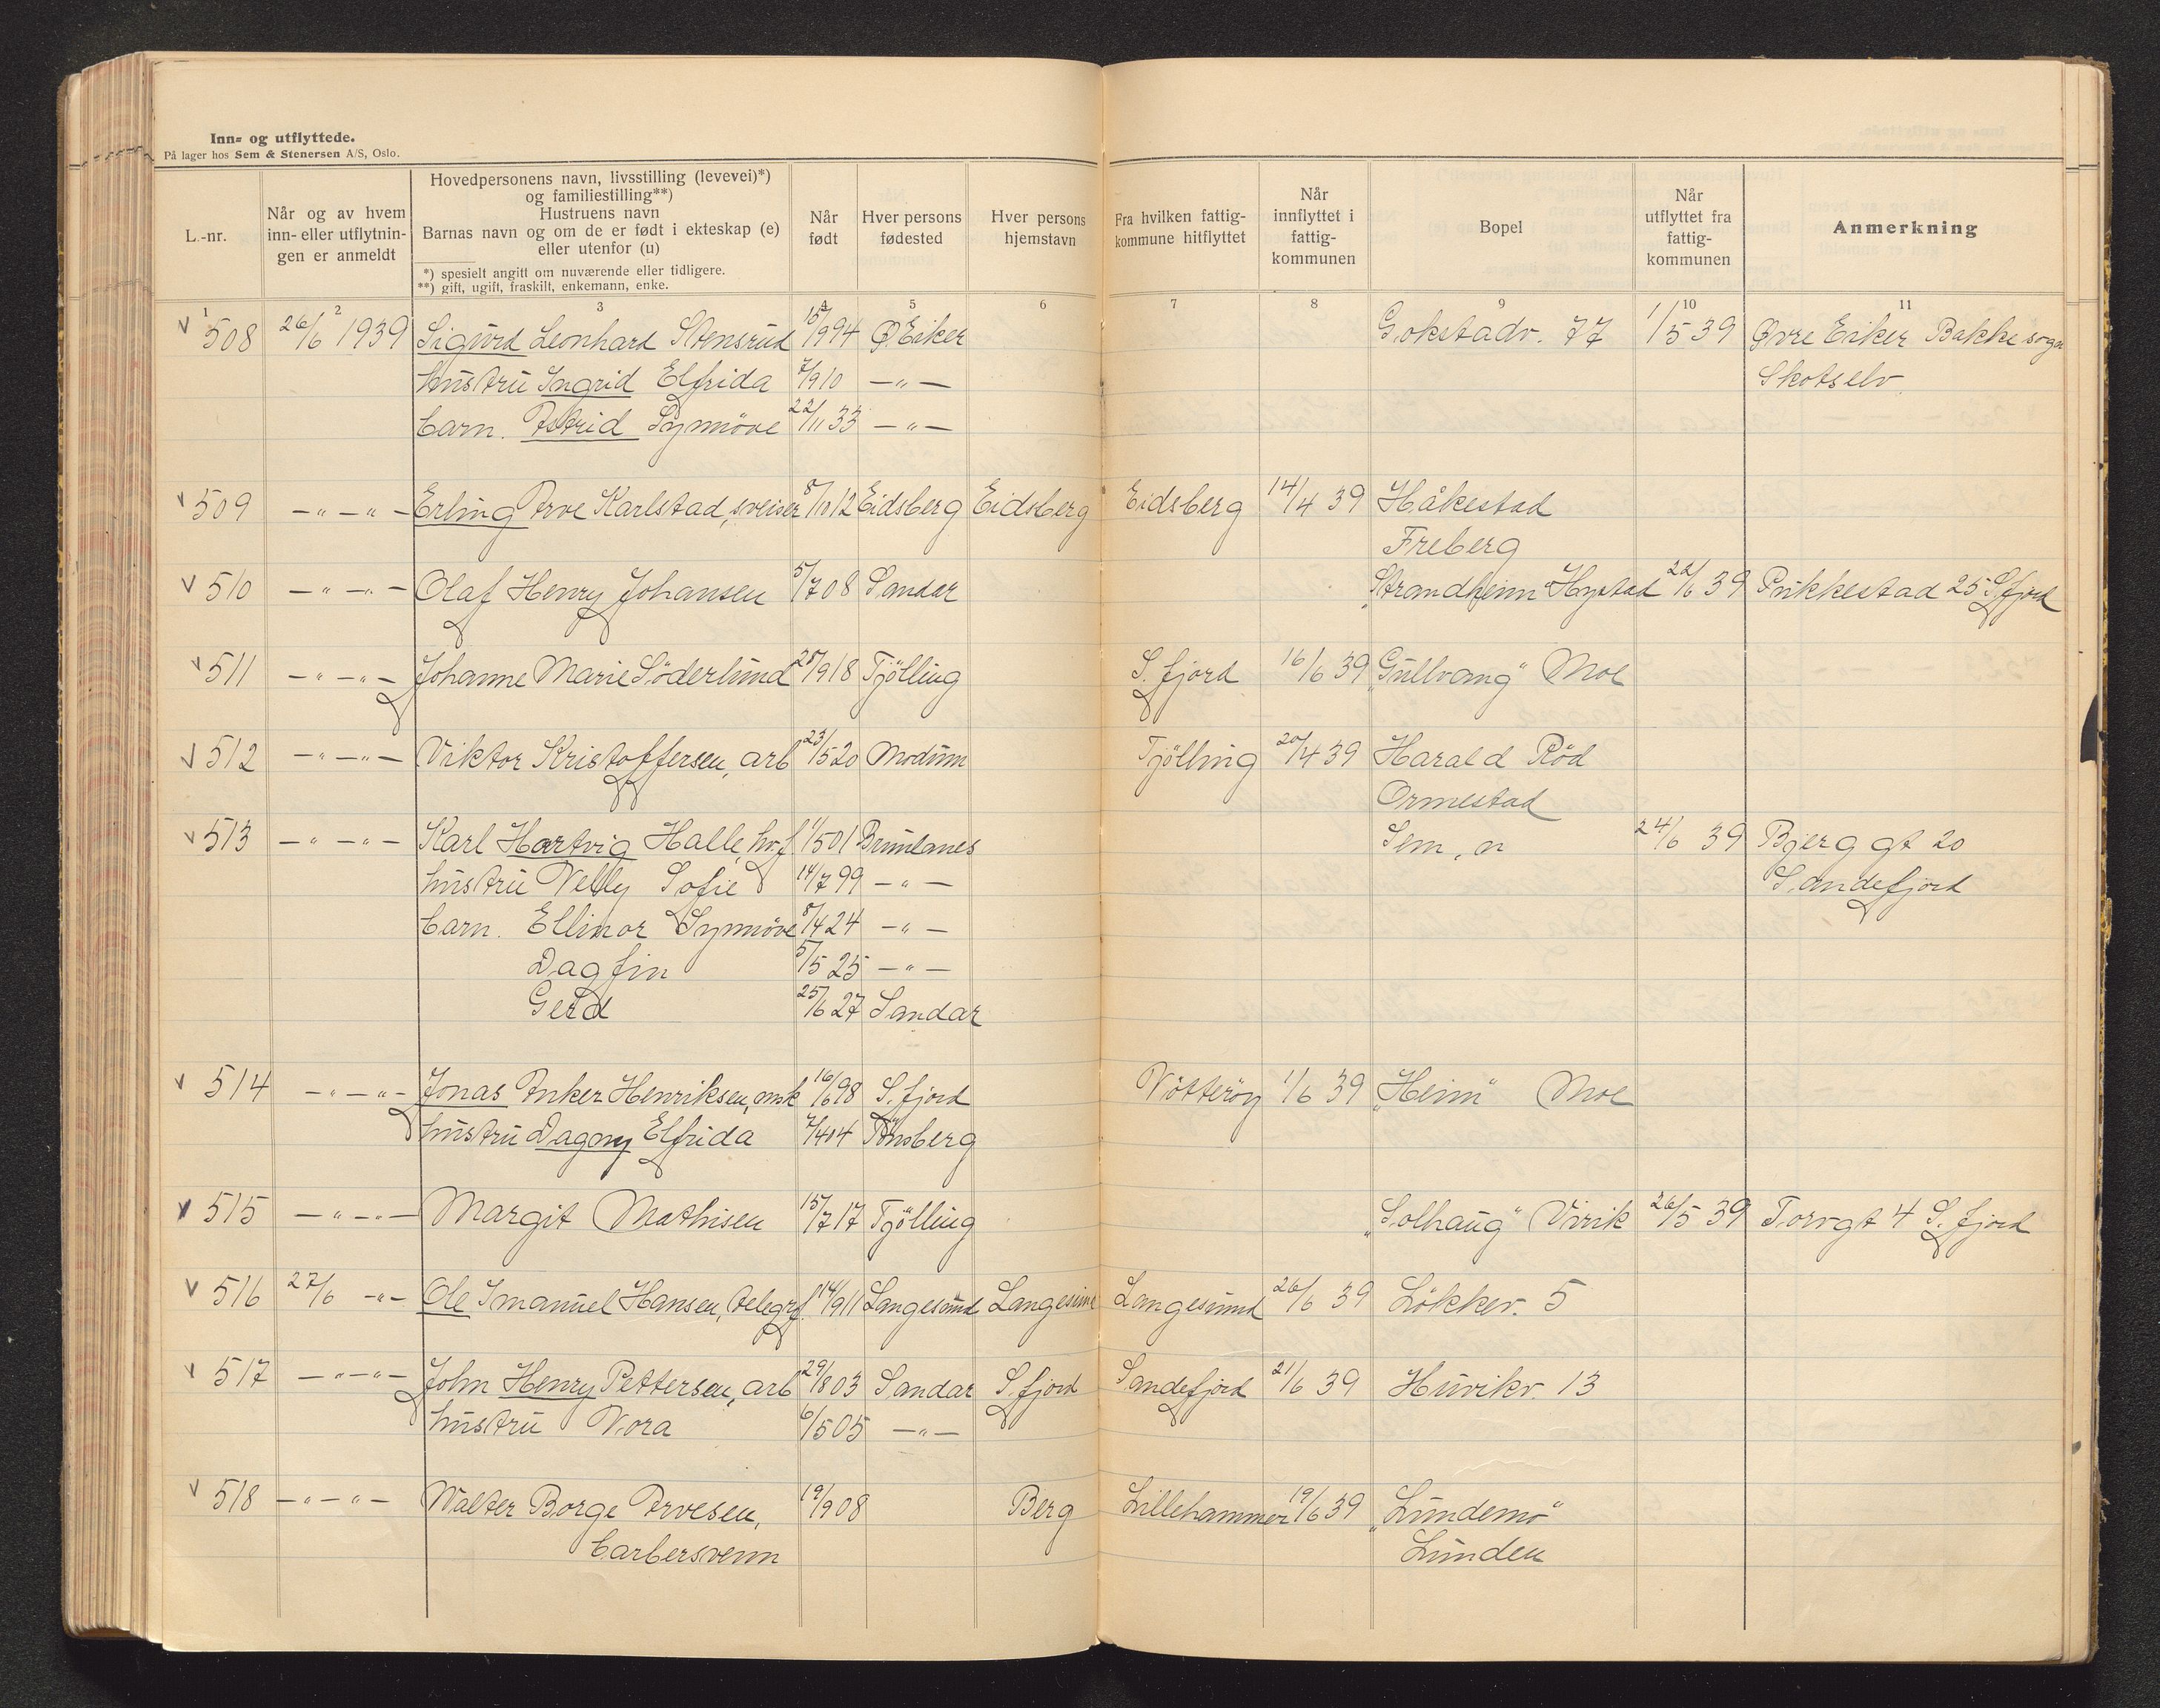 Inn- og utflyttede.
På lager hos Sem & Stenersen A/S, Oslo.
L.-nr.
Når og av hvem inn- eller utflytningen er anmeldt
Hovedpersonens navn, livsstilling (levevei)*)
og familiestilling**)
Hustruens navn
Barnas navn og om de er født i ekteskap (e)
eller utenfor (u)
*) spesielt angitt om nuværende eller tidligere.
**) gift, ugift, fraskilt, enkemann, enke.
Når født
Hver persons fødested
Hver persons hjemstavn
Fra hvilken fattigkommune hitflyttet
Når innflyttet i fattigkommunen
Bopel
Når utflyttet fra fattigkommunen
Anmerkning
1 2 3 4 5 6 7 8 9 10 11
v 508 26/6 1939 Sigurd Leonhard Stensrud 15/9 94 Ø Eiker Gokstadv. 77 1/5 39 Øvre Eiker Bakke sogn
hustru Ingrid Elfrida 7/9 10 — „ — Skotselv.
barn. Astrid Synnöve 22/11 33 — „ —
v 509 — „ — „ — Erling Arve Karlstad, sveiser 8/10 12 Eidsberg Eidsberg Eidsberg 14/4 39 Håkestad
Freberg
v 510 — „ — „ — Olaf Henry Johansen 5/7 08 Sandar „Strandheim" Hystad 22/6 39 Pukkestad 25 S.fjord
v 511 — „ — „ — Johanne Marie Söderlund 28/9 18 Tjölling S. fjord 16/6 39 „Gullvang" Moe
v 512 — „ — „ — Viktor Kristoffersen, arb 23/5 20 Modum Tjölling 20/4 39 Harald Röd
Ormestad
v 513 — „ — „ — Karl Hartvig Halle, hv.f 1/5 01 Brunlanes Sem, n 24/6 39 Bjerggt 20
hustru Velly Sofie 14/7 99 — „ — Sandefjord
barn. Ellinor Synnöve 8/4 24 — „ —
Dagfin 5/5 25 — „ —
Gerd 25/6 27 Sandar
v 514 — „ — „ — Jonas Anker Henriksen, msk 16/6 98 S. fjord Nötteröy 1/6 39 „Heim" Moe
hustru Dagny Elfrida 7/4 04 Tönsberg
v 515 — „ — „ — Margit Mathisen 15/7 17 Tjölling „Solhaug" Virik 26/5 39 Torvgt 4 S. fjord
v 516 27/6 — „ — Ole Imanuel Hansen, telegrf. 14/9 11 Langesund Langesund Langesund 26/6 39 Lökkev. 5
v 517 — „ — „ — John Henry Pettersen, arb 29/8 03 Sandar S. fjord Sandefjord 21/6 39 Huvikv. 13
hustru Nora 6/5 05 — „ —
v 518 — „ — „ — Walter Borge Arvesen, 19/9 08 Berg Lillehammer 19/6 39 „Lundemo"
barbersvenn Lunden